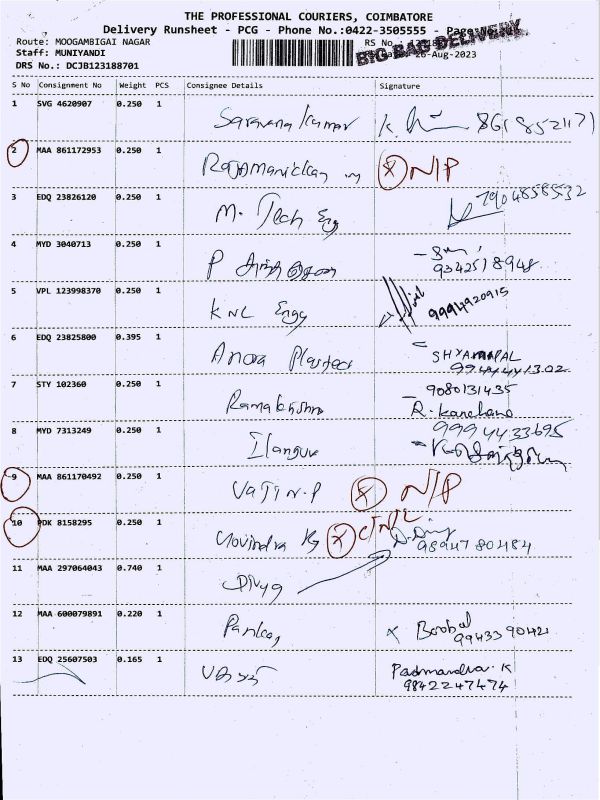 THE PROFESSIONAL COURIERS, COIMBATORE
Delivery Runsheet - PCG - Phone No.:0422-3505555 - Page No
Route: MOOGAMBIGAI NAGAR
BIG BAG DELIVERY
Staff: MUNIYANDI
26-Aug-2023
DRS No.: DCJB123188701
S No Consignment No Weight PCS Consignee Details Signature
1 SVG 4620907 0.250 1 Saravana Kumar K.
2 MAA 861172953 0.250 1 N/P
3 EDQ 23826120 0.250 1 M. Tech Eng 7904858532
4 MYD 3040713 0.250 1 P
9342518948
5 VPL 123998370 0.250 1 KNL Engg 9994920915
6 EDQ 23825800 0.395 1 Anora Plastect SHYAMAPAL
9944441302
7 STY 102360 0.250 1 Ramakrishna 9080131435
R. Kanchana
8 MYD 7313249 0.250 1 Ilanguv 9994433695
9 MAA 861170492 0.250 1 N/P
10 PDK 8158295 0.250 1 Govindra C/N/L
9894780484
11 MAA 297064043 0.740 1 Divya
12 MAA 600079891 0.220 1 Pankaj Boobal
9943390421
13 EDQ 25607503 0.165 1 Padmandra. K
9842247474